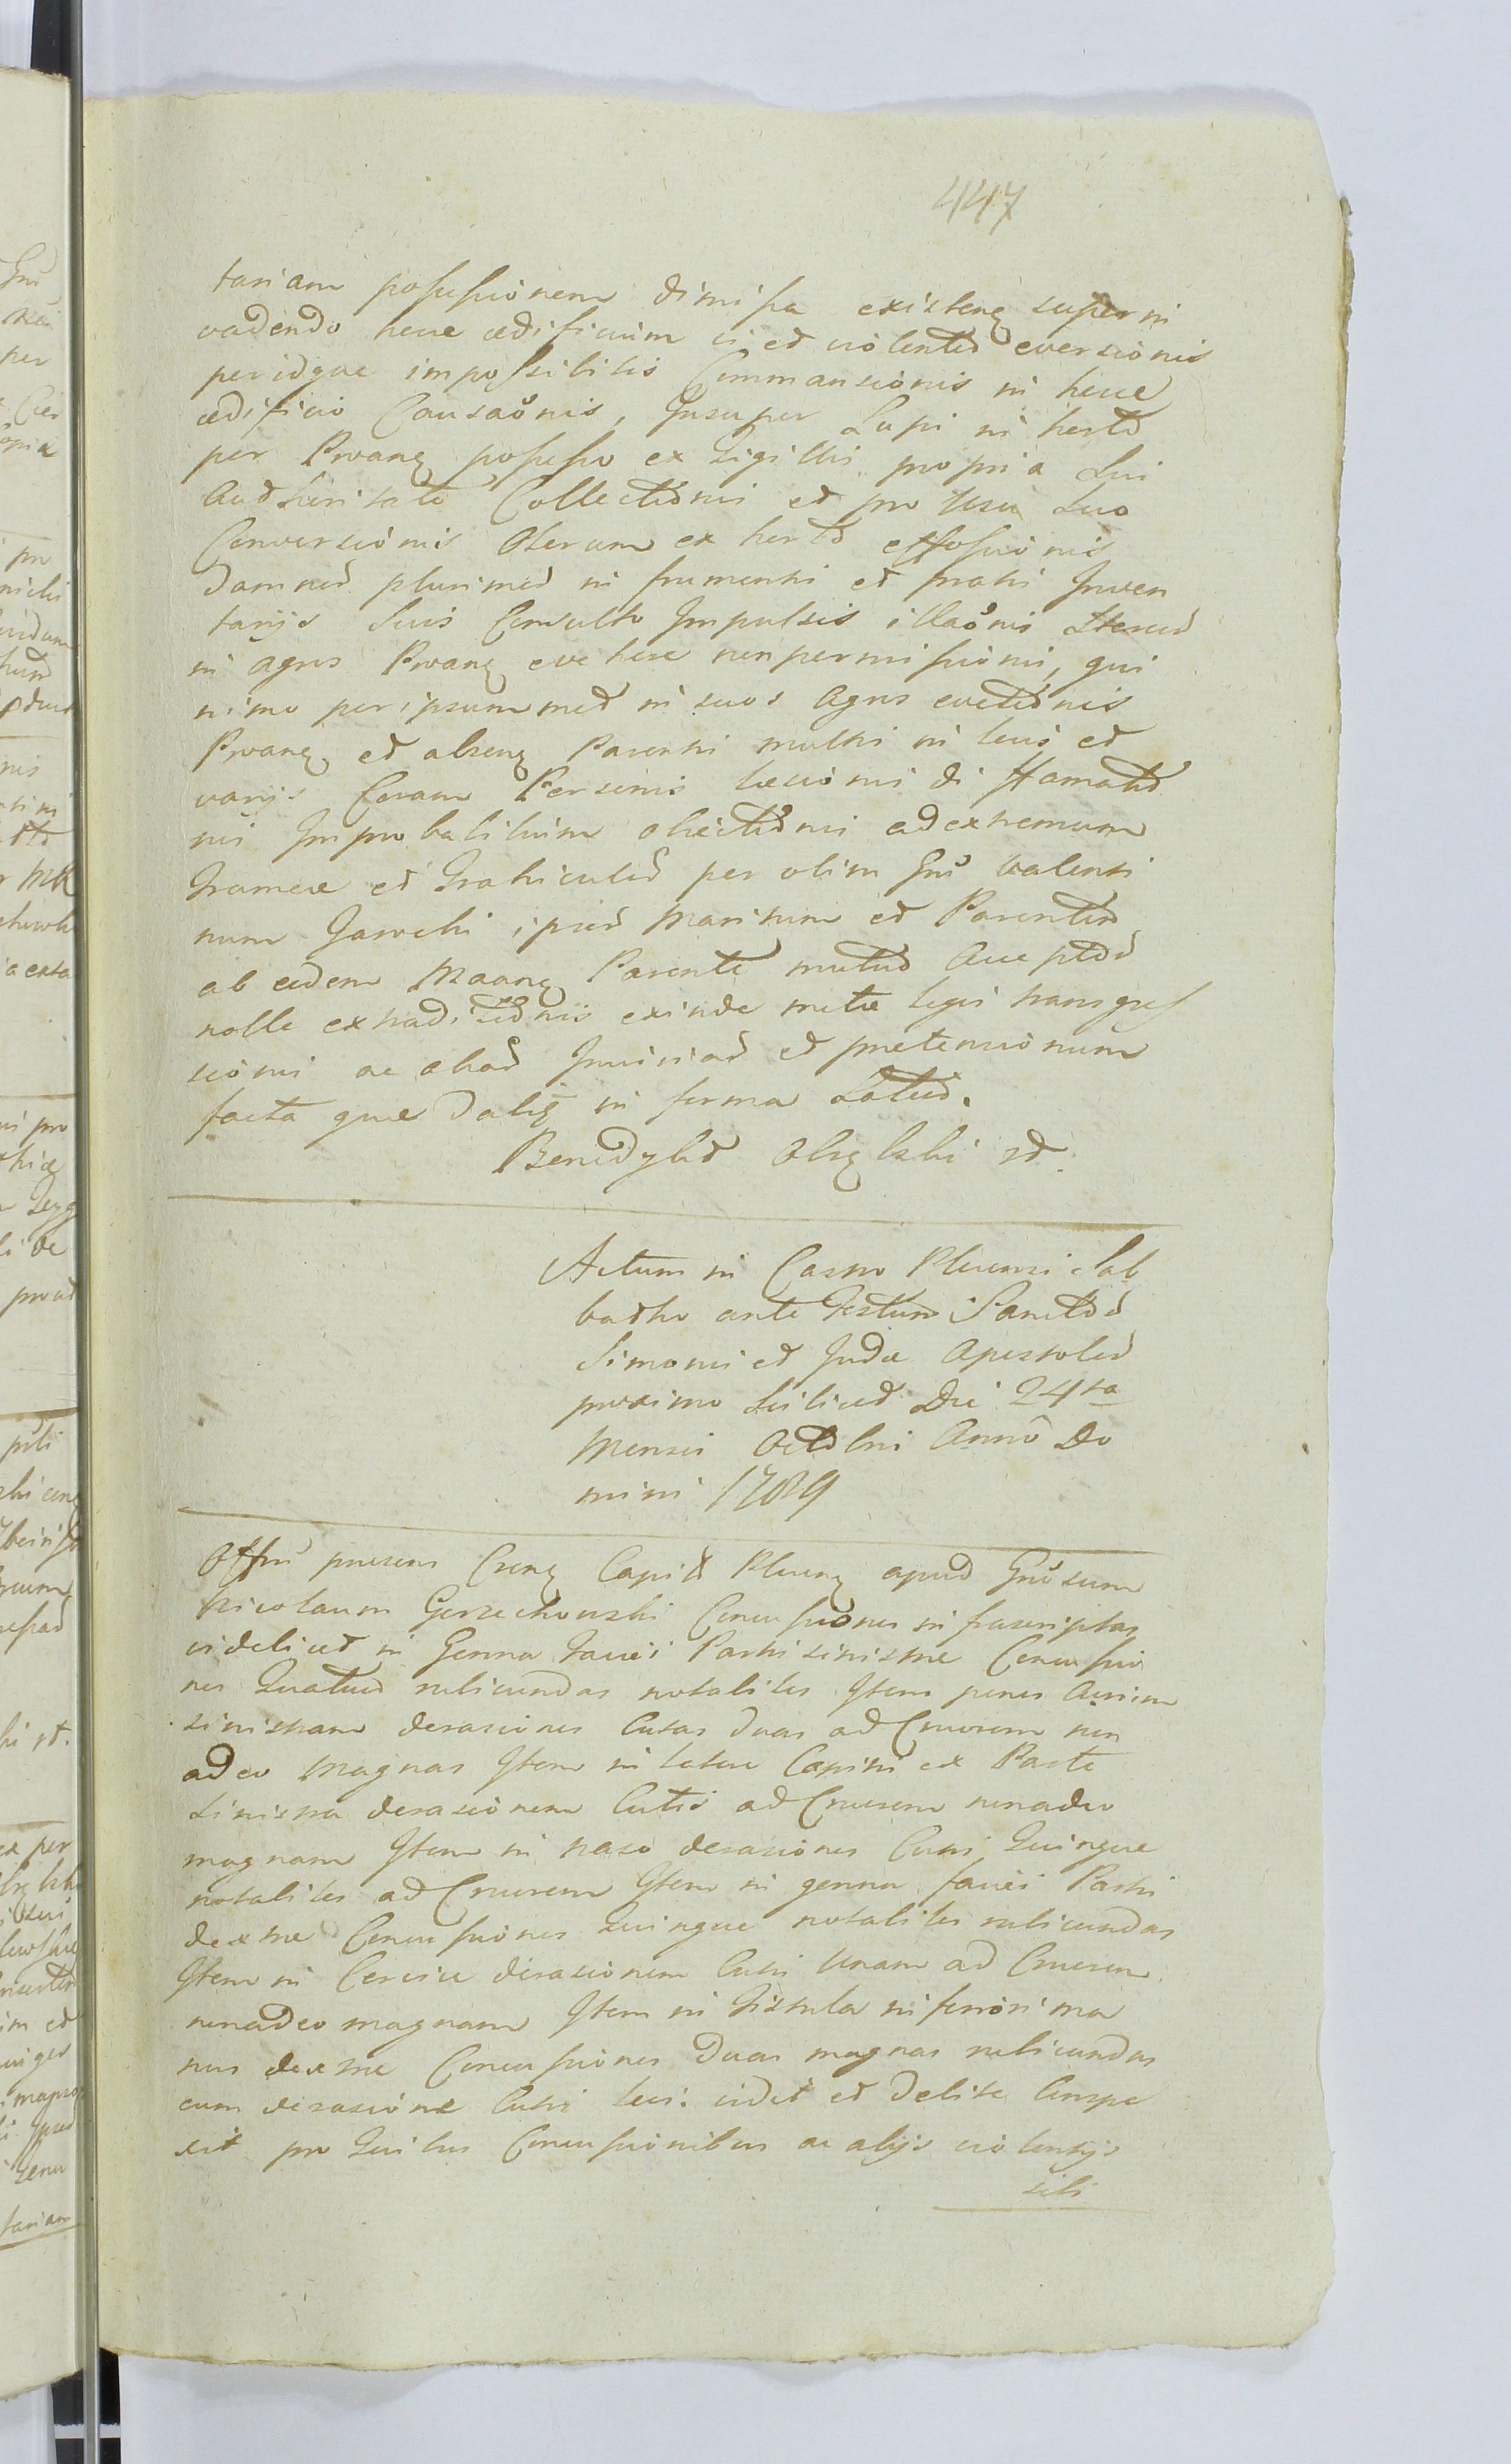 447
tariam possessionem dimissa existen superin
vadendo hocce ædificium vi et violenter eversionis
peridque impossibilis Commansionis in hocce
ædificio Causaonis, Insuper Lupi in horto
per Prvang possesso ex Sigillis propria Sui
Authoritate Collectionis et pro Usu Suo
Conversionis Olerum ex horto effossionis
Damnor plurimor in frumentis et pratis Inven
tarijs Suis Consulto Impulsis illaonis Stercor
in agros Prvang evehere non permissionis, qui
nimo per ipsummet in suos Agros evectionis
Prvang et absen Parentis multis in locis et
varijs Coram Personis læsionis diffamatio
nis Improbalitium obiectionis ad extremum
Framea et Grahicular per olim Gnu Valenti
num Jarochi ipsius Maritum et Parentem
ab eodem Maang Parente mutuo Acceptor
nolle extraditionis exinde metæ legis transgres
sionis ac aliar Iniuriar et pretensionum
facta quæ Dalig in forma Latior.
Benedykt Olszeski st.
Actum in Castro Plocensi Sab
batho ante Festum Sanctor
Simonis et Judæ Apostolor
proximo Scilicet Die 24ta
Mensis Octobris Anno Do
mini 1789
Offm præsens Crens Capitt Plocens apud Gnosum
Nicolaum Gorzechowski Concussiones infrascriptas
videlicet in Genna faciei Partis sinistræ Concussio
nes Quatuor rubicundas notabiles Item penes Aurim
sinistram derasiones Cutis duas ad Cruorem non
adeo magnas Item in latere Capitis ex Parte
Sinistra derasionem Cutis ad Cruorem nonadeo
magnam Item in naso derasiones Cutis Quinque
notabiles ad Cruorem Item in genna faciei Partis
dextræ Concussiones Quinque notabiles rubicundas
Item in Cervice derasionem Cutis Unam ad Cruorem
nonadeo magnam Item in fistula inferiori ma
nus dextræ Concussiones Duas magnas rubicundas
cum derasione Cutis loci. vidit et Debite Conspe
xit pro Quibus Concussionibus ac alijs violentijs
sibi